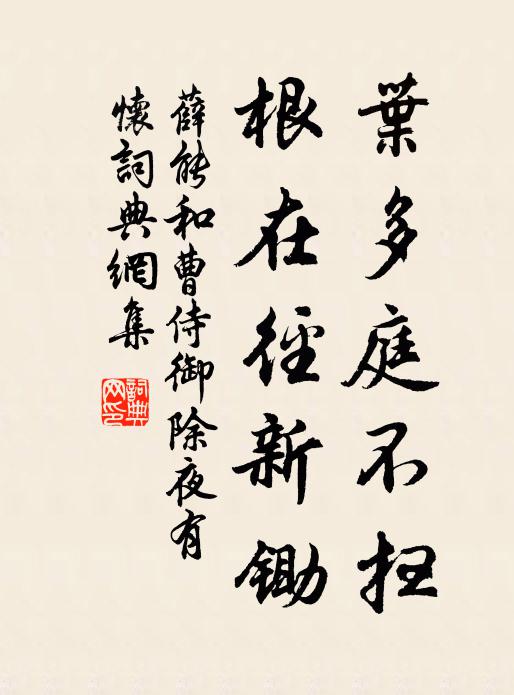 葉多庭不扫
根在徑新鋤
薛能和曹侍御除夜有
懷詞典網集
詞典
网印